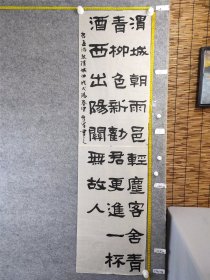 渭城朝雨邑輕塵客舍青
青柳色新勸君更進一杯
酒西出陽關無故人